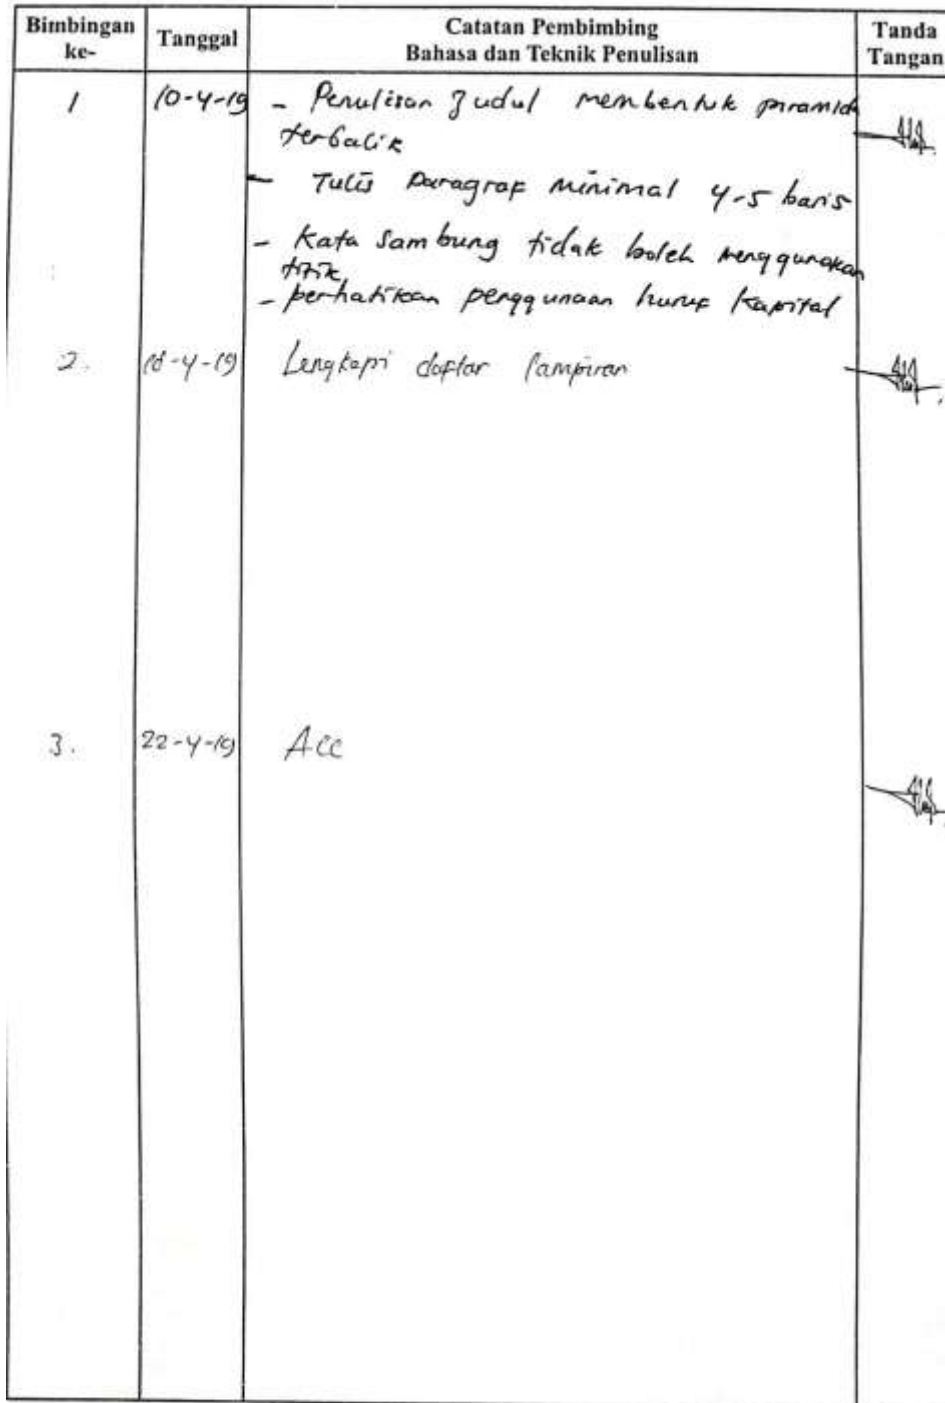 Bimbingan ke- Tanggal Catatan Pembimbing Bahasa dan Teknik Penulisan Tanda Tangan
1 10-4-19 - Penulisan Judul membentuk piramida
terbalik
- Tulis Paragraf minimal 4-5 baris
- Kata Sambung tidak boleh menggunakan
titik
- perhatikan penggunaan huruf Kapital
2. 18-4-19 Lengkapi daftar lampiran
3. 22-4-19 Acc